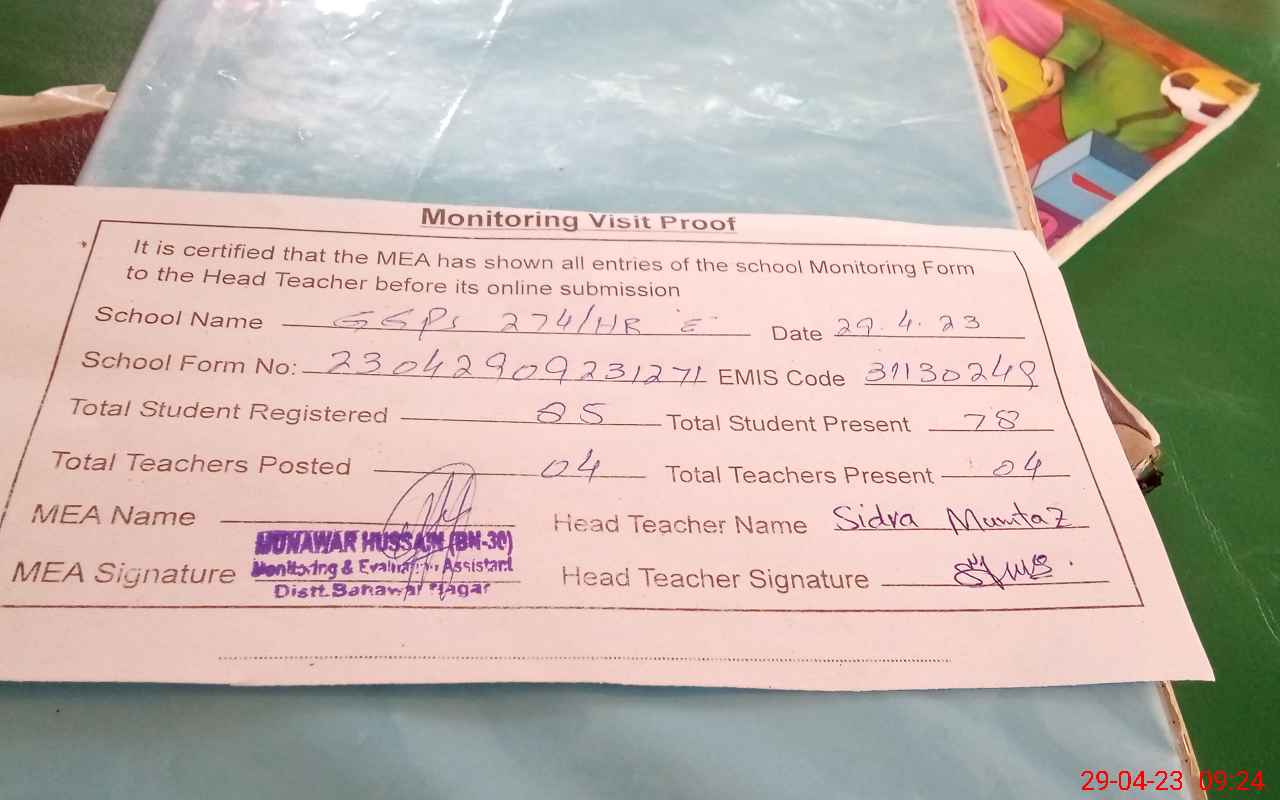 Monitoring Visit Proof
It is certified that the MEA has shown all entries of the school Monitoring Form
to the Head Teacher before its online submission
School Name GGPS 274/HR E Date 29.4.23
School Form No: 23042909231271 EMIS Code 31130249
Total Student Registered 85 Total Student Present 78
Total Teachers Posted 04 Total Teachers Present 04
MEA Name Head Teacher Name Sidra Mumtaz
MUNAWAR HUSSAIN (BN-30)
Monitoring & Evaluation Assistant
MEA Signature Head Teacher Signature
Distt. Bahawal Nagar
29-04-23 09:24